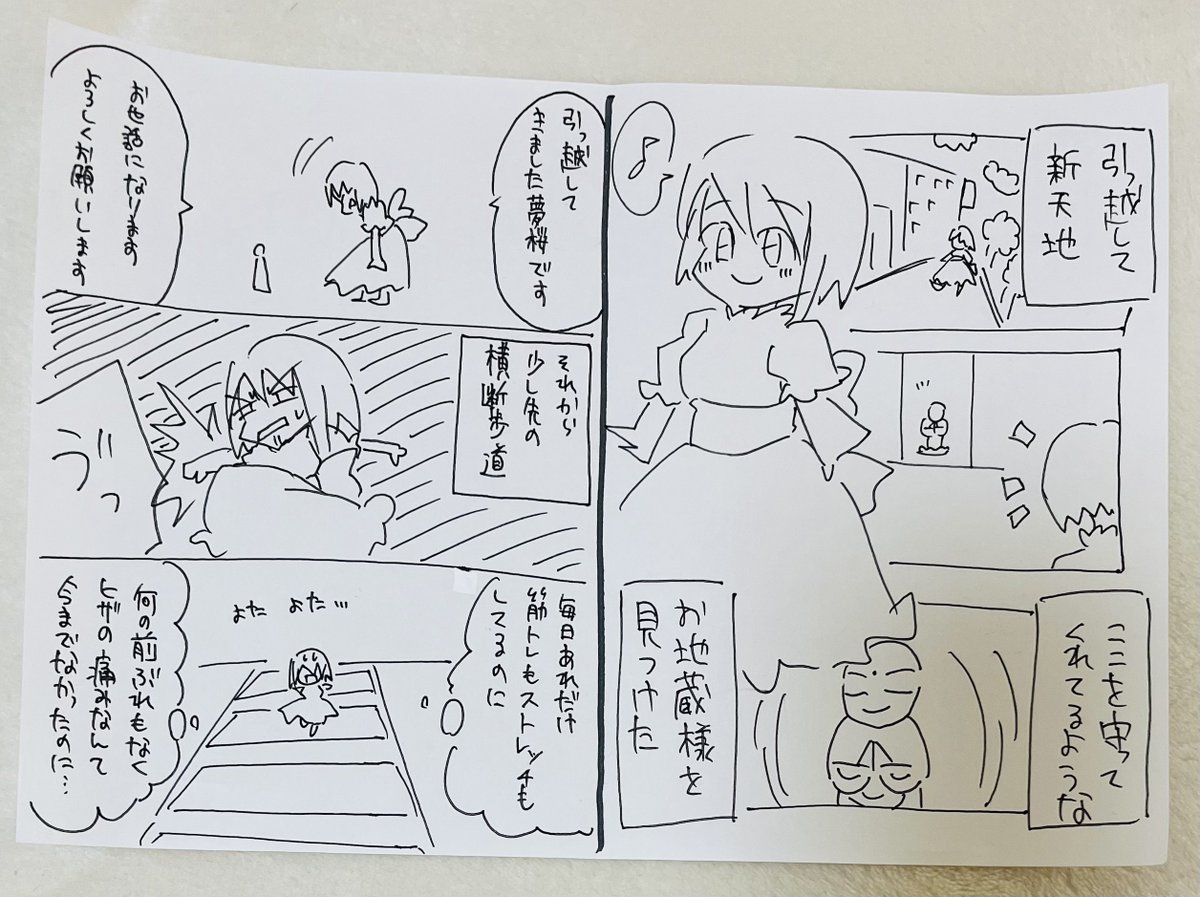 引っ越して
新天地
♪
ここを守って
くれてるような
お地蔵様を
見つけた
引っ越して
きました夢桜です
お世話になります
よろしくお願いします
それから
少し先の
横断歩道
ズッ
毎日あれだけ
筋トレもストレッチも
してるのに
よた よた…
何の前ぶれもなく
ヒザの痛みなんて
今までなかったのに…